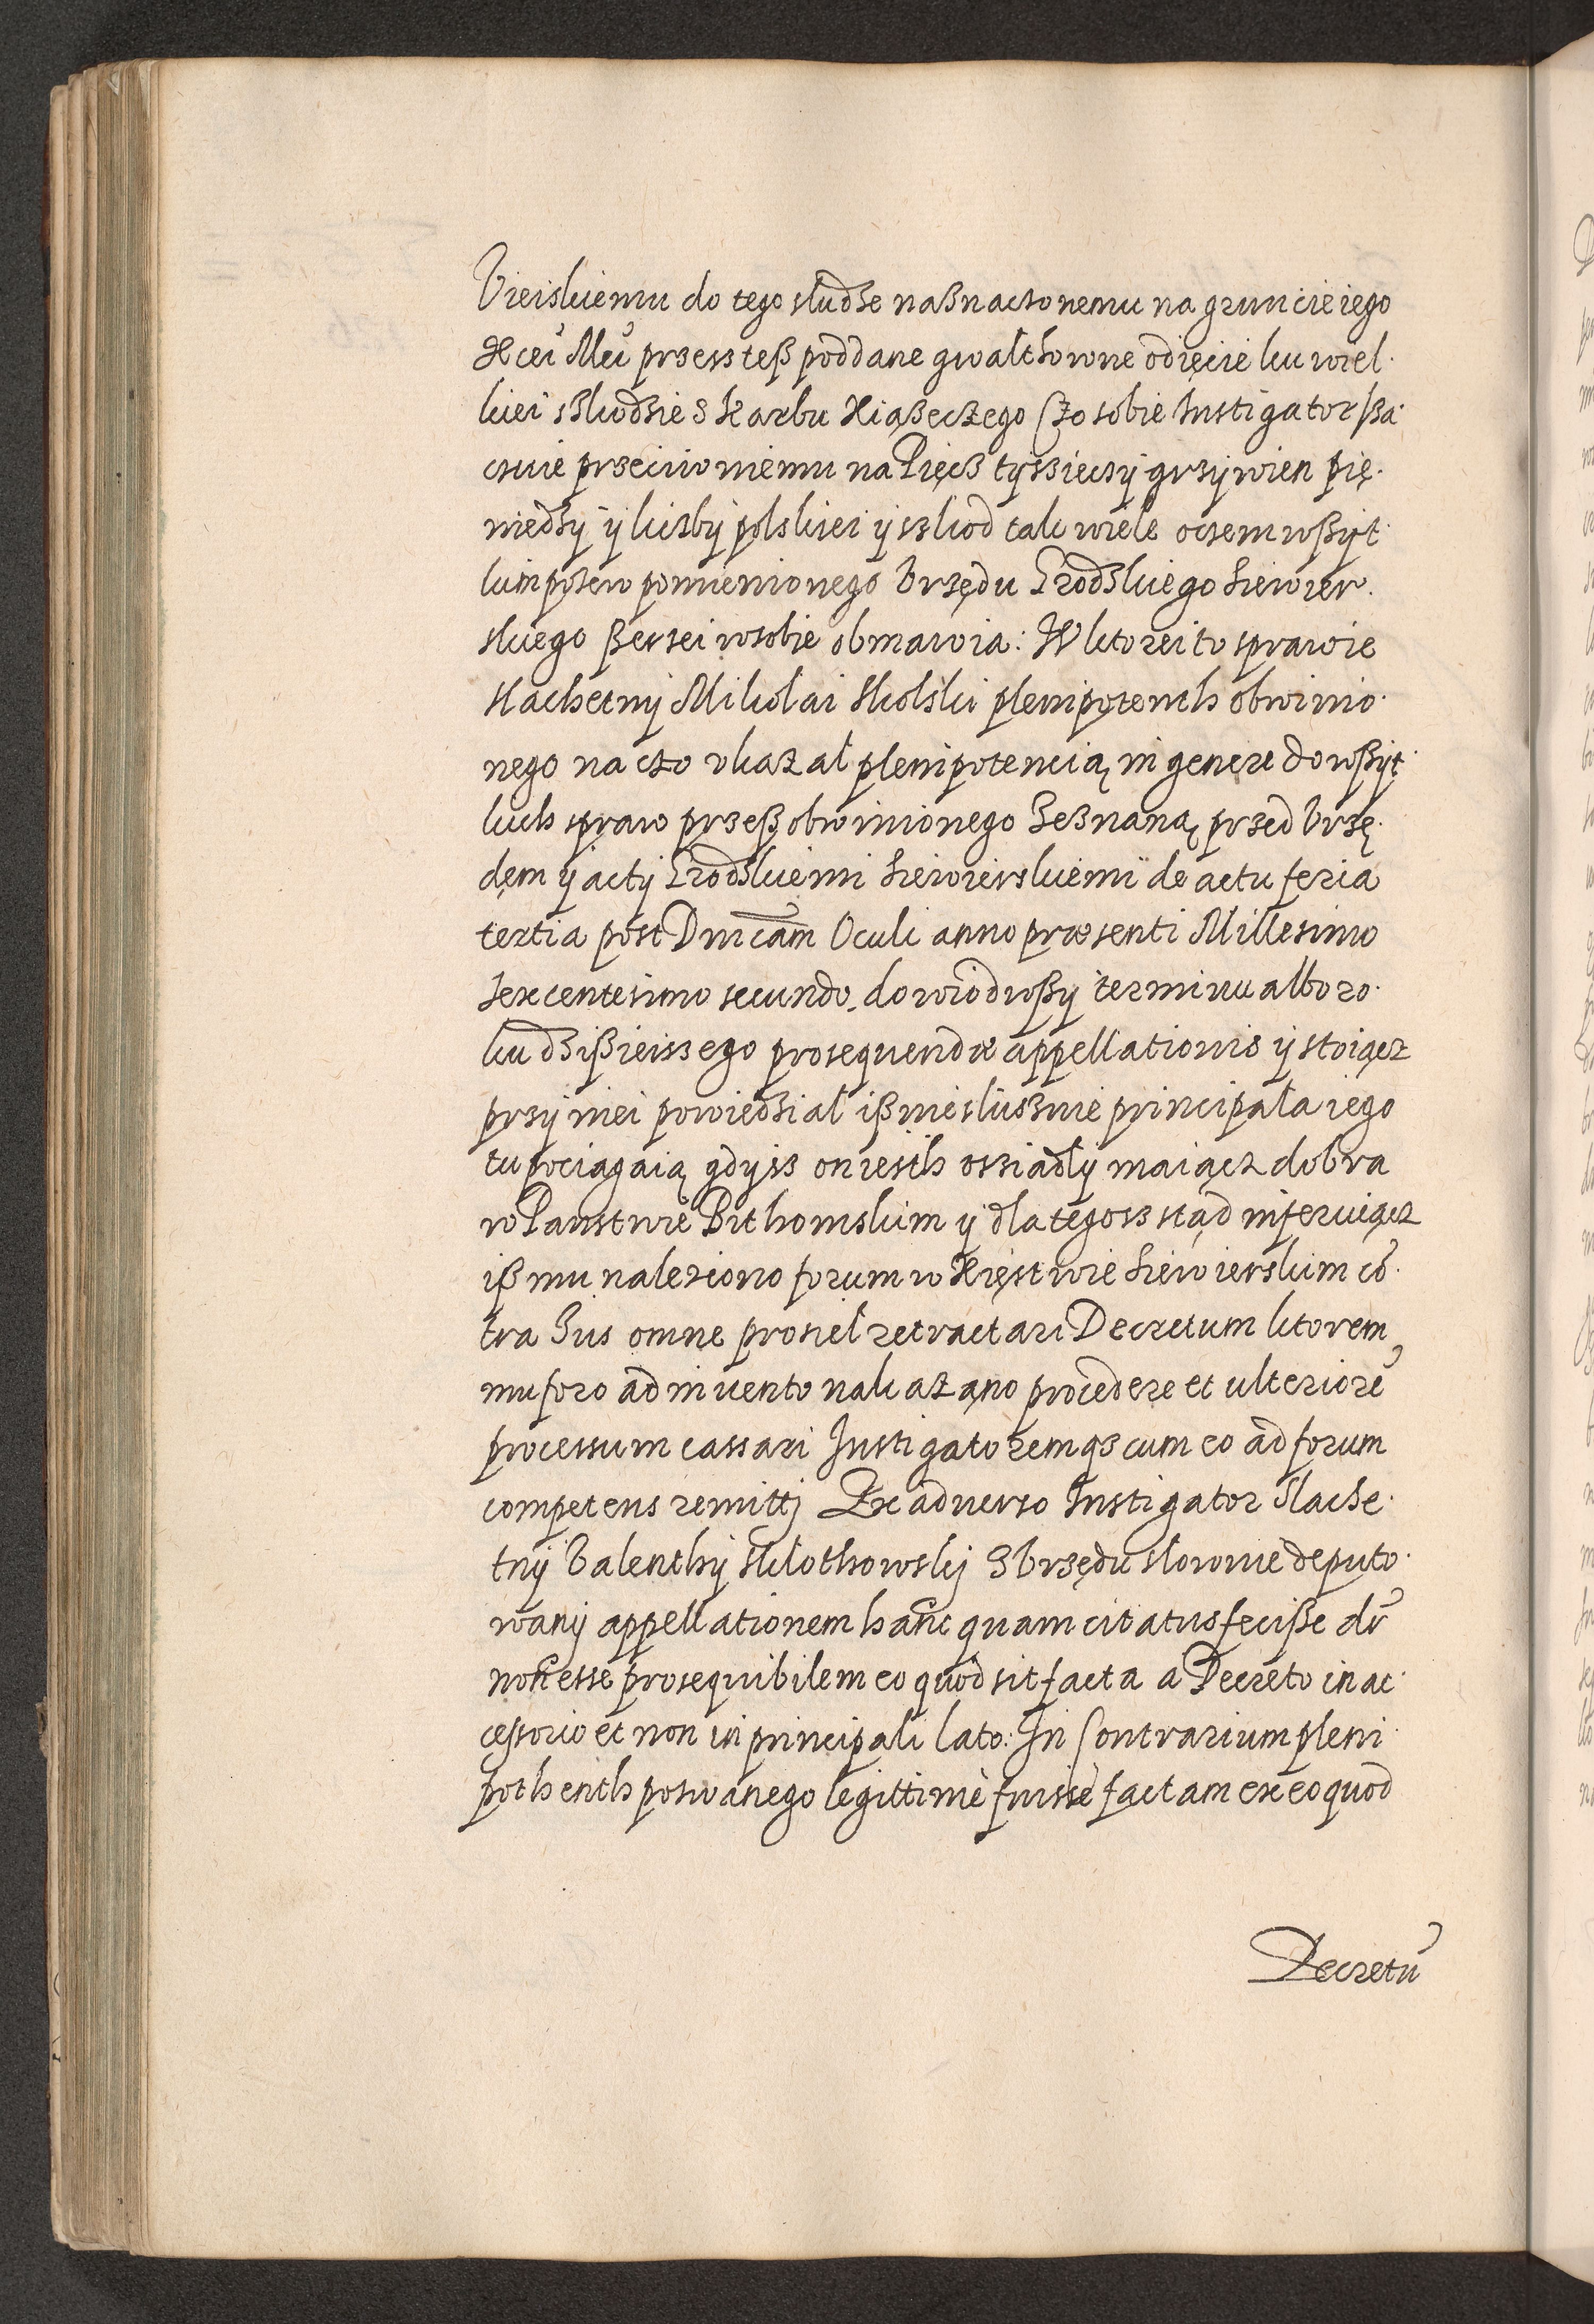 Vieiskiemu do tego sludze naßnaczonemu na gruncie iego
Xcei Mci przess teß poddane gwalthowne odięcie ku wiel-
kiei sskodzie Skarbu Xiąßeczego Czo sobie Instigator ßa-
czuie przeciwo niemu na Pięcz tyssieczÿ grzywien pię-
niedzÿ ÿ liczbÿ polskiei ÿ sskod tak wiele oczem wßÿt-
kim pozew pomienionego Vrzędu Grodzskiego Siewier-
skiego sserzei wsobie obmawia: W ktorei to sprawie
slachetnÿ Mikolai Skolski plenipotenth obwinio-
nego na czo vkazal plenipotencią in genere do wßÿt-
kich spraw przeß obwinionego Zeznaną przed Vrzę-
dem ÿ actÿ Grodzskiemi Siewierskiemi de actu feria
tertia post Dnicam Oculi anno præsenti Millesimo
Sexcentesimo secundo, dowiodwßÿ terminu albo ro-
ku dzißieissego prosequendæ appellationis ÿ stoiącz
przÿ niei powiedzial iß nieslusznie principala iego
tu pociągaią gdÿss on iesth ossiadlÿ maiącz dobra
w Panstwie Bithomskim ÿ dla tegoss stąd inferuiącz
iß mu naleziono forum w Xięstwie Siewierskim co-
tra Ius omne prosiel retractari Decretum ktorem
mu foro adinuento nakazano procedere et ulteriore
processum cassari Instigatoremq3 cum eo ad forum
competens remittj Ex aduerso Instigator Slache-
tnÿ Valenthÿ Sklothowskj Z Vrzędu slownie deputo-
wanÿ appellationem hanc quam citatus fecisse dr
non esse prosequibilem eo quod sit facta a Decreto in ac-
cessorio et non in principali lato: In Contrarium pleni-
pothenth pozwanego legittime fuisse factam ex eo quod
Decretu